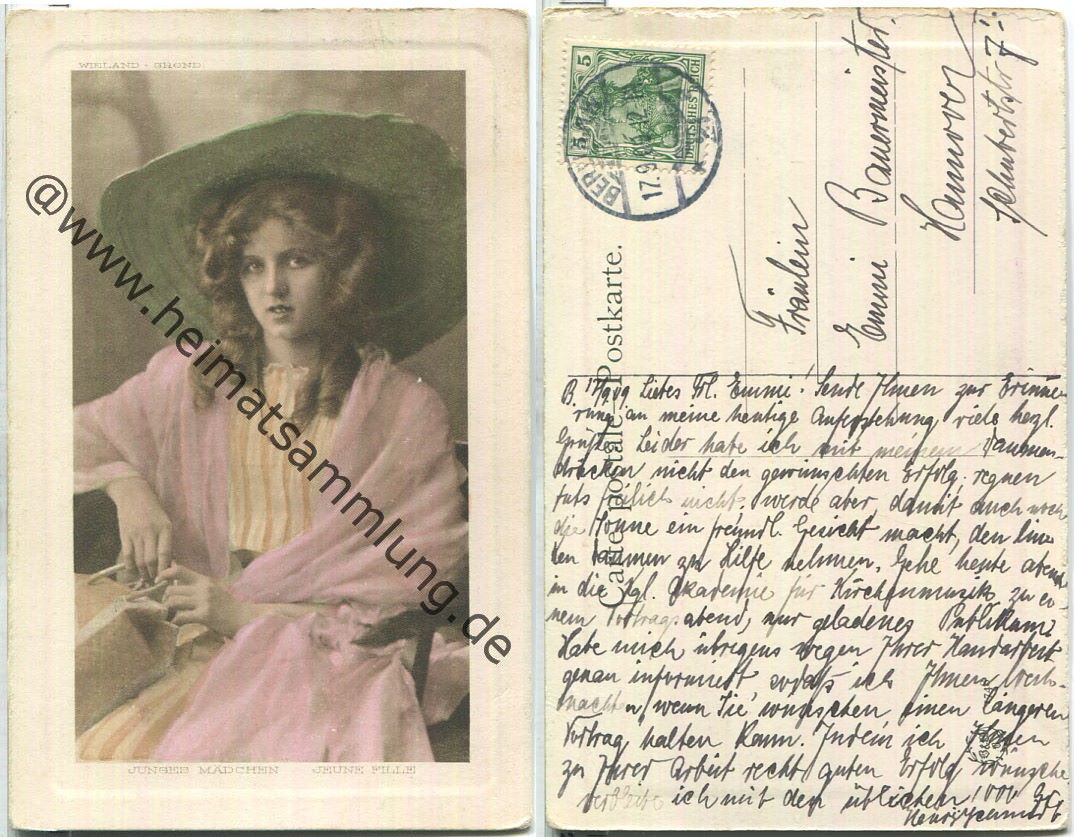 WIELAND - GROND
@www.heimatsammlung.de
JUNGES MÄDCHEN JEUNE FILLE
5 5
DEUTSCHES REICH
BERL
17.9
Carte postale Postkarte.
Fräulein
Emmi Bauermeister
Hannover
Schubertstr 7
B. 17/9.09 Liebes Frl. Emmi! Sende Ihnen zur Erinne-
rung an meine heutige Auferstehung viele herzl.
Grüße. Leider habe ich mit meinem Daumen-
drücken nicht den gewünschten Erfolg. regnen
tuts freilich nicht. werde aber, damit auch noch
die Sonne ein freundl. Gesicht macht, den lin-
ken Daumen zu Hilfe nehmen. Gehe heute abend
in die Kgl. Akademie für Kirchenmusik zu ei-
nem Vortragsabend, nur geladenes Publikum.
Habe mich übrigens wegen Ihrer Handarbeit
genau informiert sodaß ich Ihnen Weih-
nachten, wenn Sie wünschen einen längeren
Vortrag halten kann. Indem ich Ihnen
zu Ihrer Arbeit recht guten Erfolg wünsche
verbleibe ich mit den üblichen 1000 Gr.